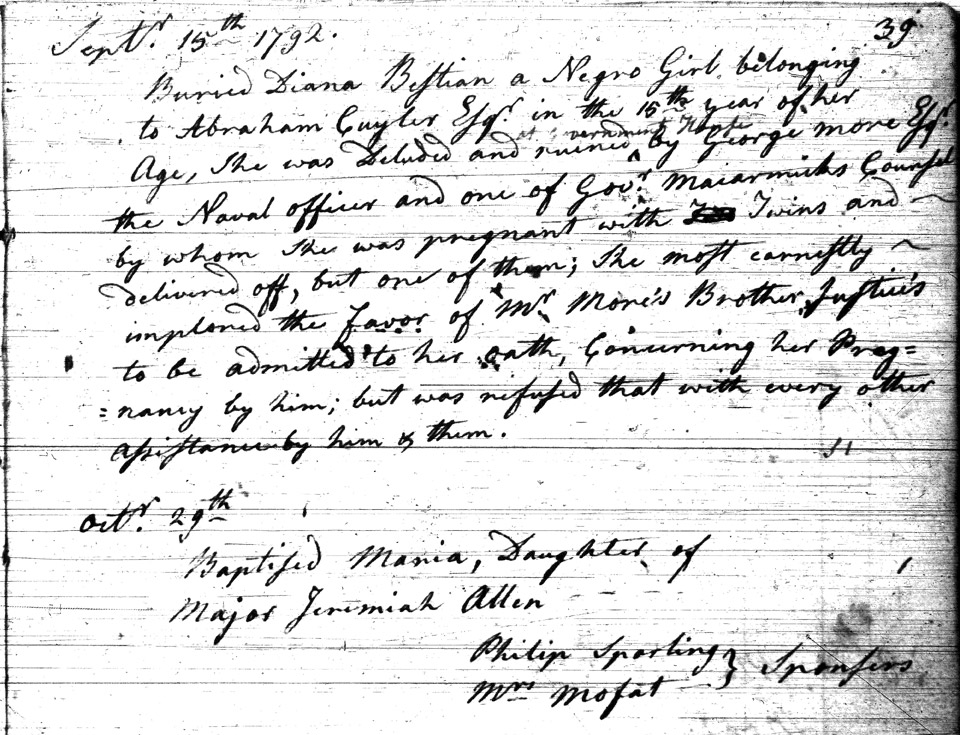 39
Septr. 15th 1792.
Buried Diana Bestian a Negro Girl belonging
to Abraham Cuyler Esqr. in the 15th year of her
Age, She was Deluded and ruined at Government House by George More Esqr.
the Naval officer and one of Govr. Macarmicks Counsel
by whom She was pregnant with Twins and ~
delivered off, but one of them; She most earnestly ~
implored the favor of Mr. More's Brother Justice's
to be admitted to her oath, Concerning her Preg=
=nancy by him; but was refused that with every other
assistance by him & them.
Octr. 29th
Baptised Maria, Daughter of
Major Jeremiah Allen
Philip Sparling } Sponsers
Mrs Mofat